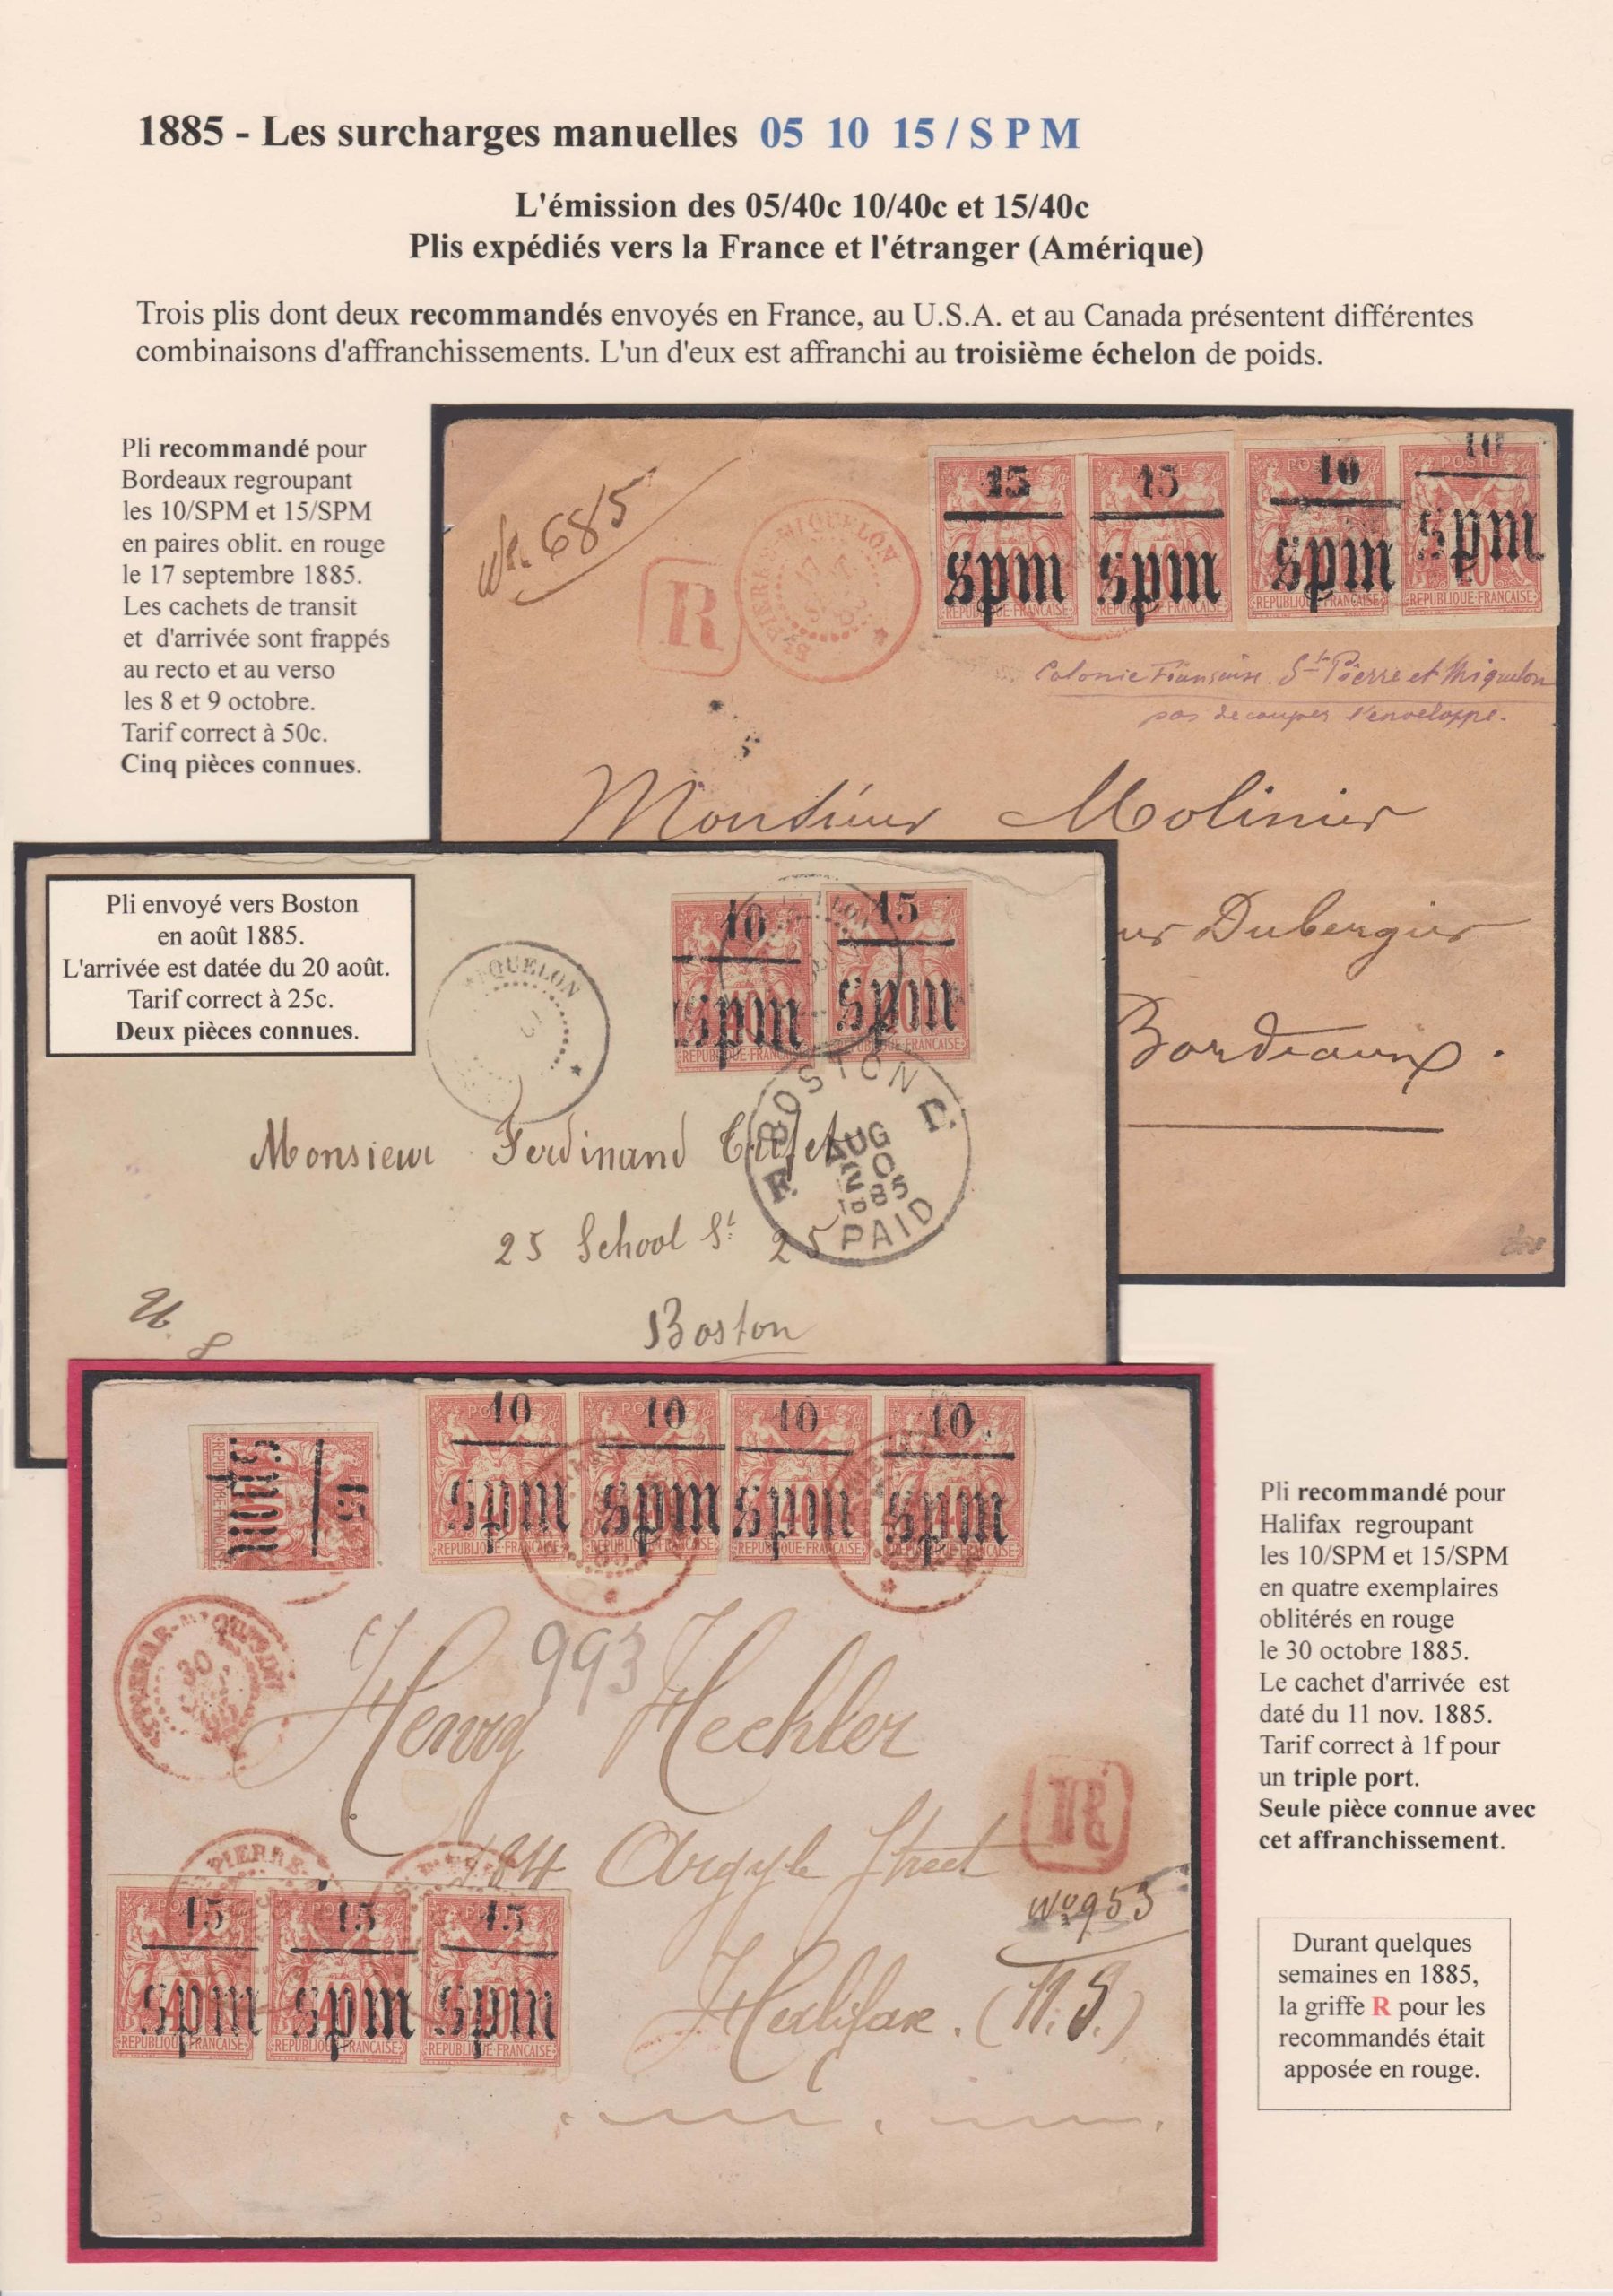 1885 - Les surcharges manuelles 05 10 15 / S P M
L'émission des 05/40c 10/40c et 15/40c
Plis expédiés vers la France et l'étranger (Amérique)
Trois plis dont deux recommandés envoyés en France, au U.S.A. et au Canada présentent différentes
combinaisons d'affranchissements. L'un d'eux est affranchi au troisième échelon de poids.
Pli recommandé pour
Bordeaux regroupant
les 10/SPM et 15/SPM
en paires oblit. en rouge
le 17 septembre 1885.
Les cachets de transit
et d'arrivée sont frappés
au recto et au verso
les 8 et 9 octobre.
Tarif correct à 50c.
Cinq pièces connues.
15 15 10 10
spm spm spm spm
REPUBLIQUE FRANCAISE REPUBLIQUE FRANCAISE REPUBLIQUE FRANCAISE REPUBLIQUE FRANCAISE
685
R
PIERRE-MIQUELON
17
Colonie Française. St Pierre et Miquelon
pas découper l'enveloppe.
Monsieur Molinier
Dubergier
Bordeaux.
Pli envoyé vers Boston
en août 1885.
L'arrivée est datée du 20 août.
Tarif correct à 25c.
Deux pièces connues.
QUELON
10 15
spm spm
REPUBLIQUE FRANCAISE REPUBLIQUE FRANCAISE
BOSTON
AUG
20
1885
PAID
Monsieur Ferdinand
25 School St 25
Boston
U.
S
15
spm
10 10 10 10
spm spm spm spm
REPUBLIQUE FRANCAISE REPUBLIQUE FRANCAISE REPUBLIQUE FRANCAISE REPUBLIQUE FRANCAISE
30
993
Henry Hechler
184 Argyle Street
R
No 953
Halifax. (N.S.)
PIERRE-
15 15 15
spm spm spm
REPUBLIQUE FRANCAISE REPUBLIQUE FRANCAISE REPUBLIQUE FRANCAISE
Pli recommandé pour
Halifax regroupant
les 10/SPM et 15/SPM
en quatre exemplaires
oblitérés en rouge
le 30 octobre 1885.
Le cachet d'arrivée est
daté du 11 nov. 1885.
Tarif correct à 1f pour
un triple port.
Seule pièce connue avec
cet affranchissement.
Durant quelques
semaines en 1885,
la griffe R pour les
recommandés était
apposée en rouge.